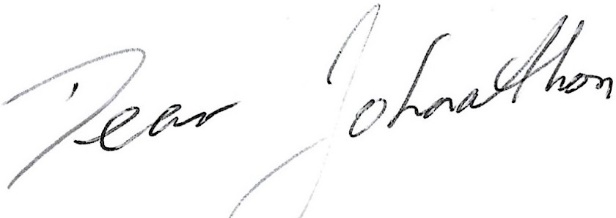 Dear Johnathon